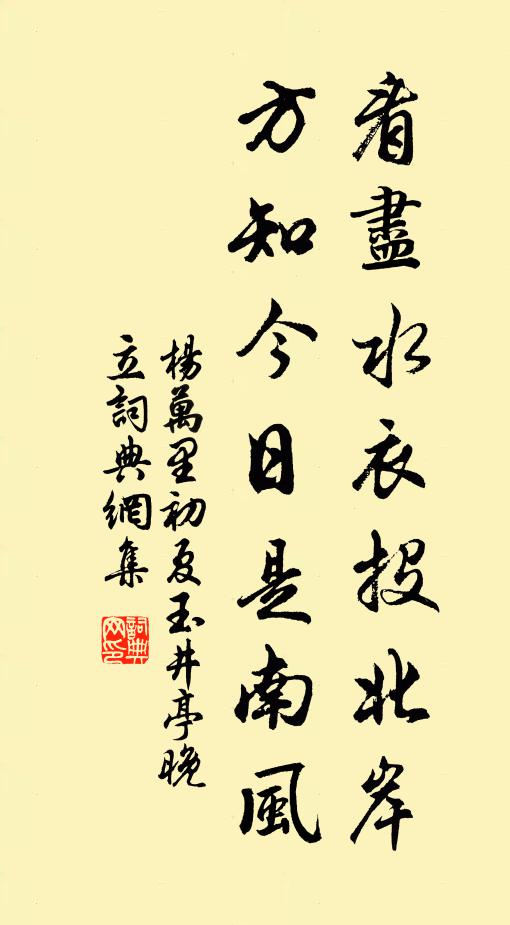 看盡水衣投北岸
方知今日是南風
楊萬里初夏玉井亭晚
立詞典網集
詞典網印